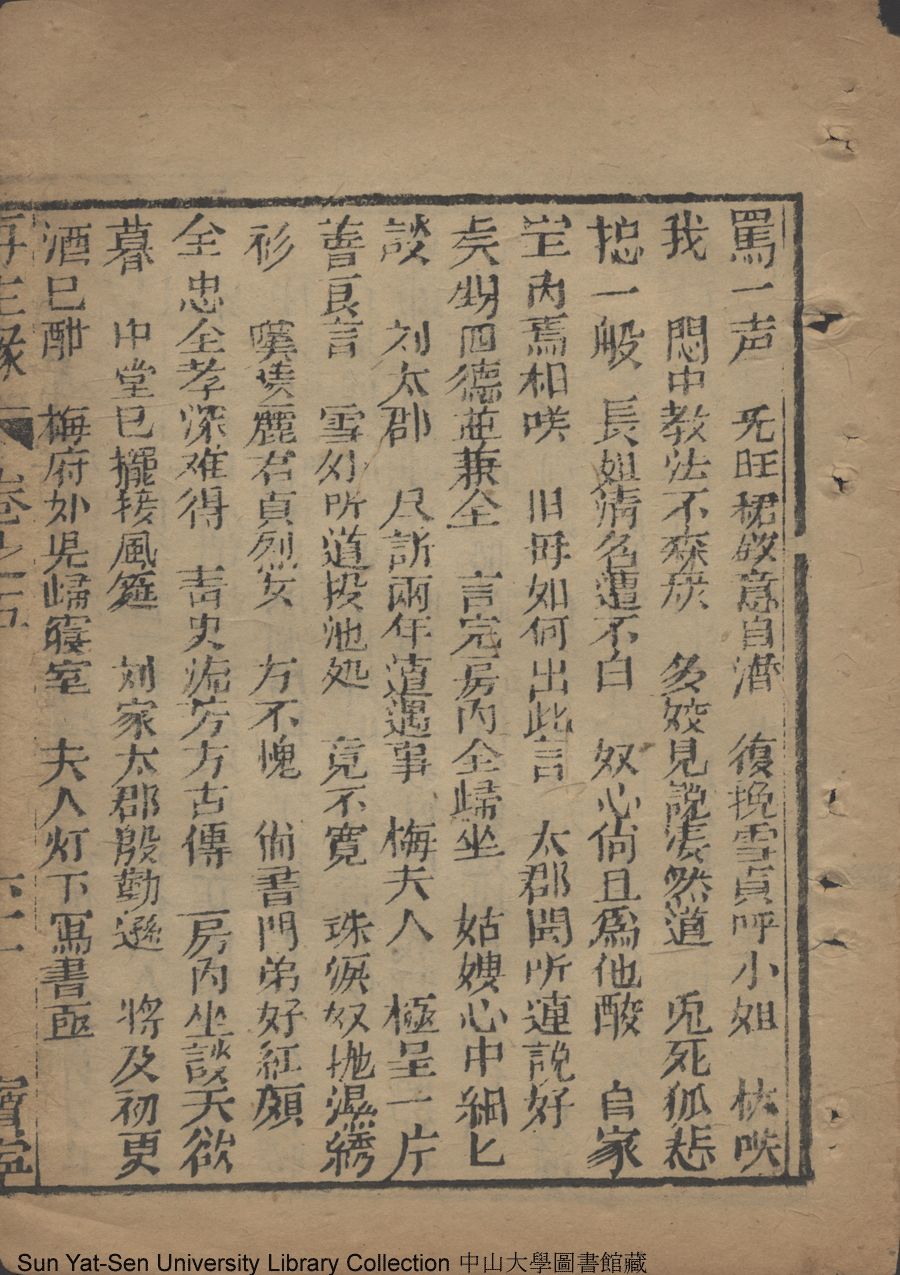 罵一声　旡旺裙故意自潸　復挽雪貞呼小姐　休咲
我　悶中教法不森炭　多姣見說淒然道　兎死狐悲
捴一般　長姐清名遭不白　奴心尙且爲他酸　自家
室內焉相咲　旧毋如何出此言　太郡聞所連說好
矣甥四德並兼全　言完房內全歸坐　姑嫂心中細匕
談　刘太郡　尺訴兩年遭遇事　梅夫人　極呈一片
善良言　雪幼所道投池処　竟不寛　珠淚奴抛濕綉
衫　嘆羙麗君貞烈女　方不愧　尙書門弟好紅顏
全忠全孝深难得　靑史流芳万古傳　房內坐談天欲
暮　中堂已擺接風筵　刘家太郡殷勤遜　將及初更
酒已酣　梅府妙児歸寢室　夫人灯下冩書函
再生緣　卷之十五　六十一　寶寧
Sun Yat-Sen University Library Collection 中山大學圖書館藏